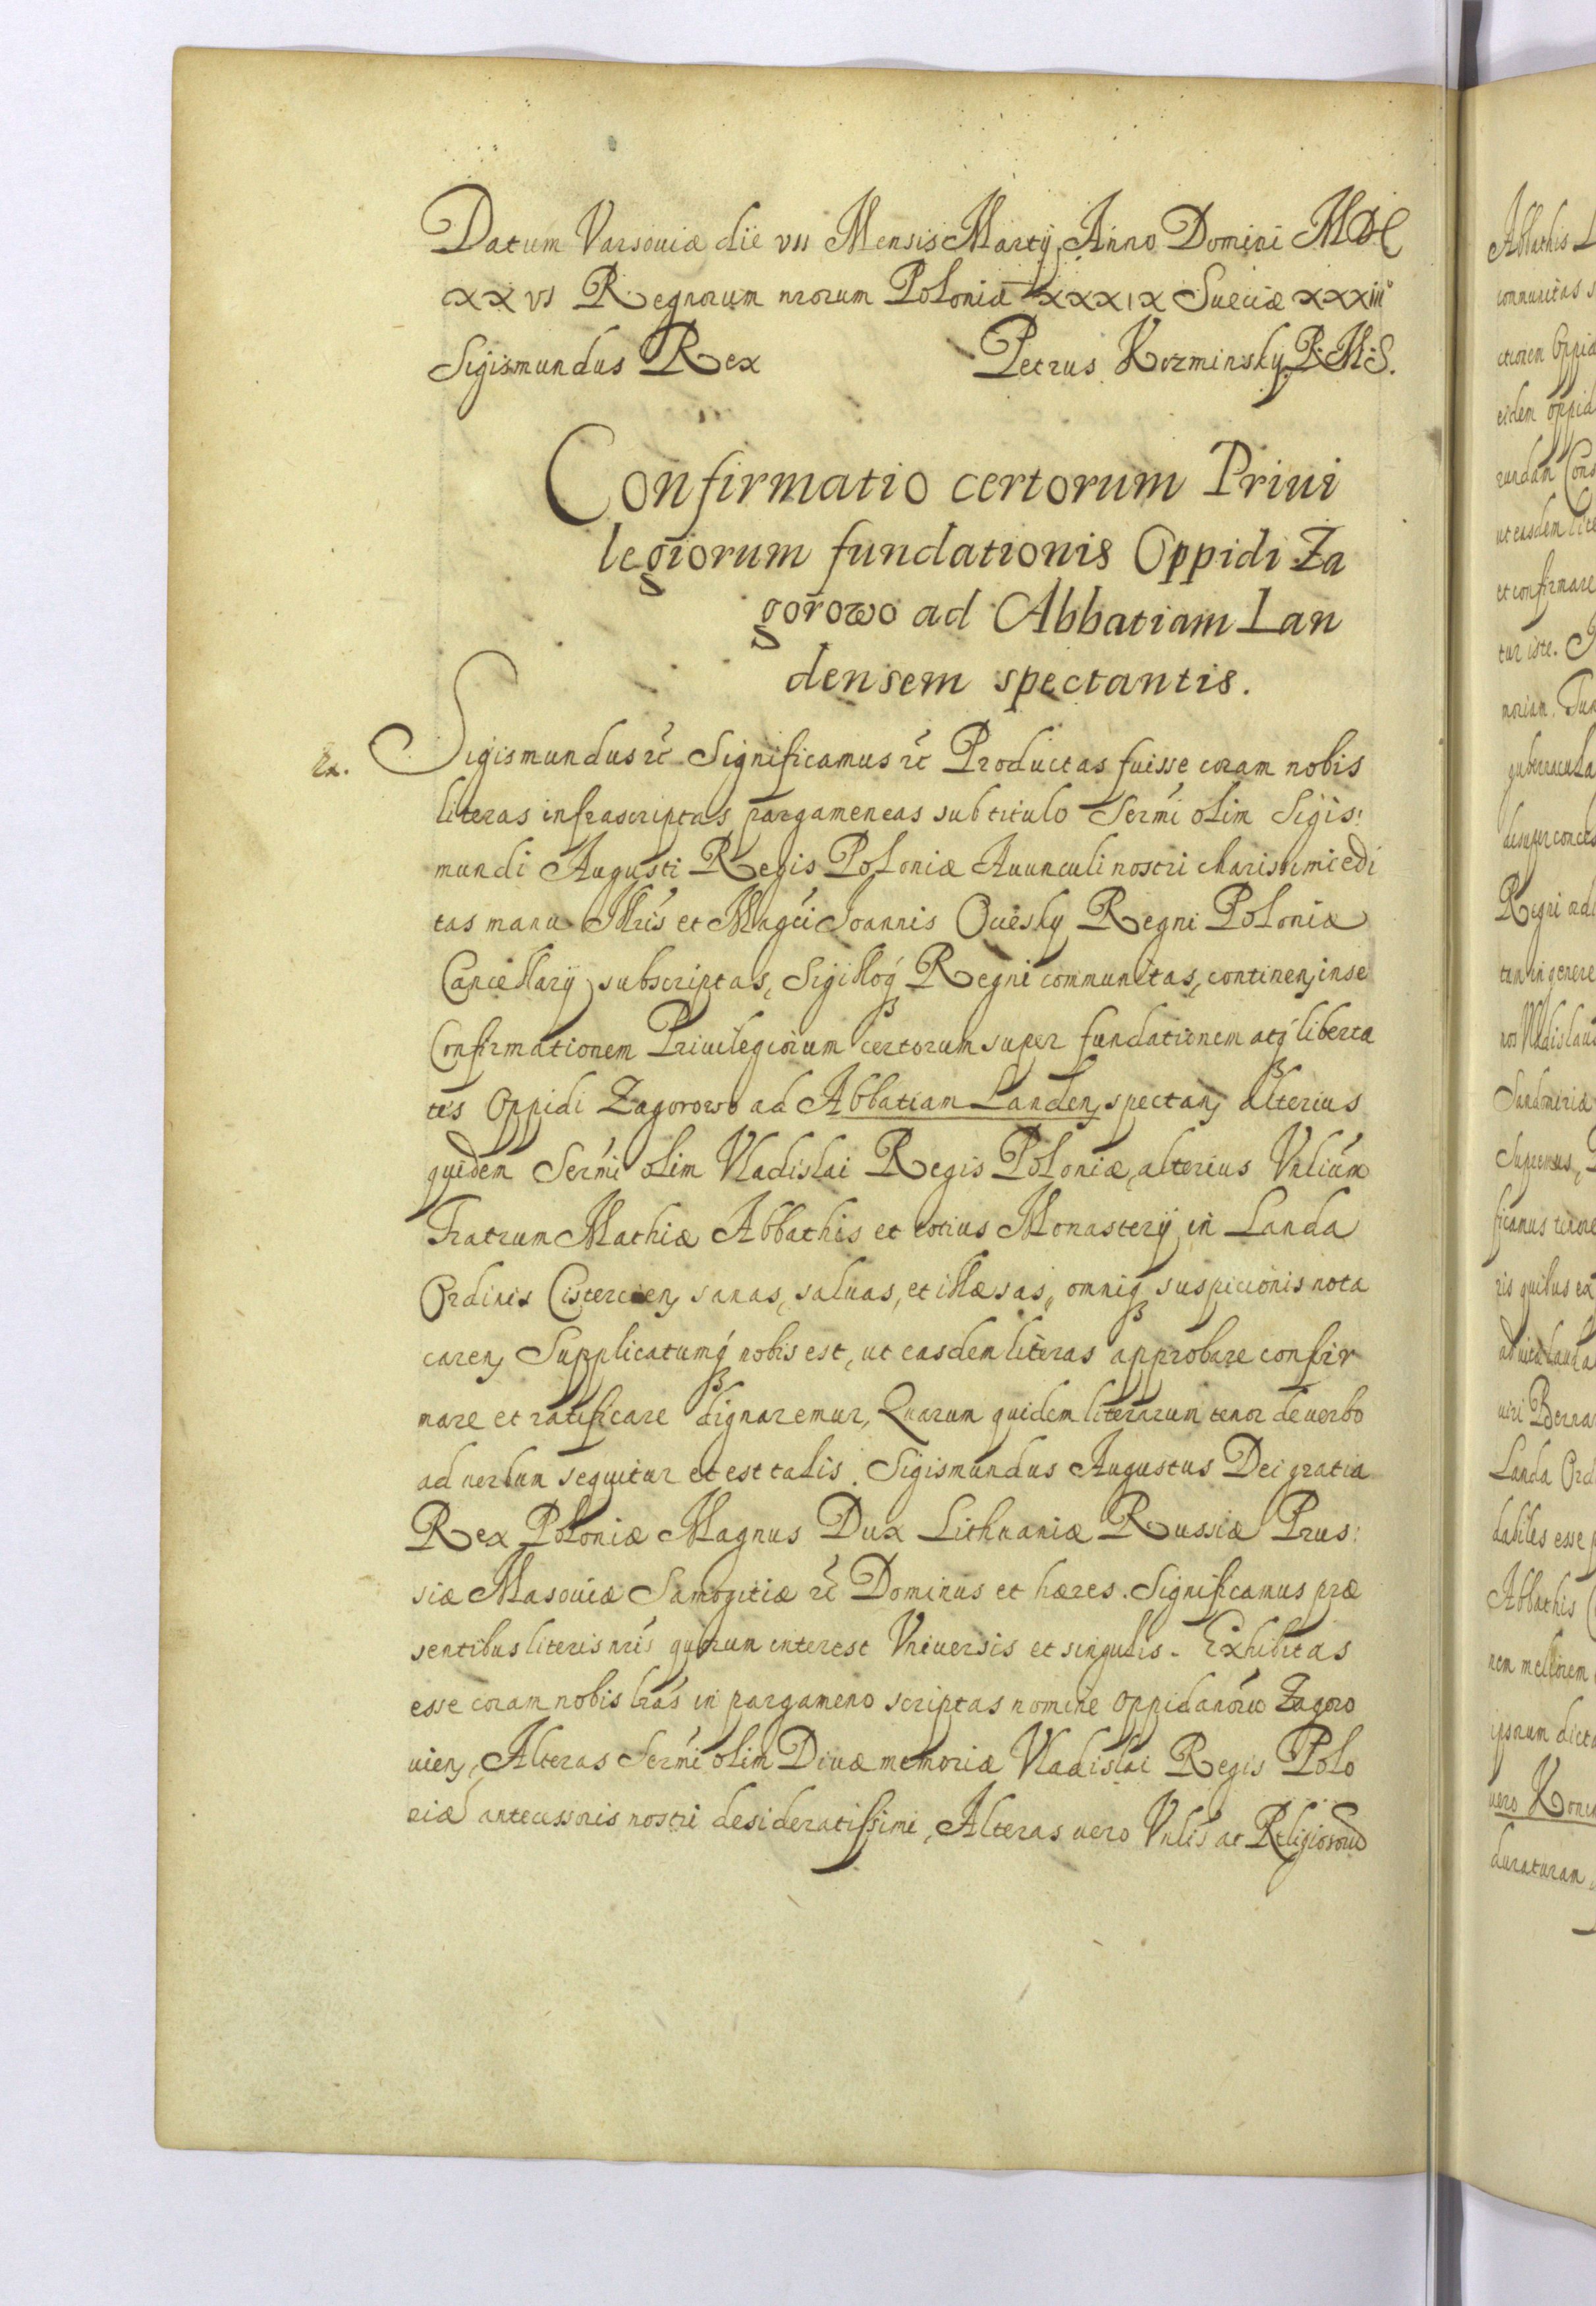 Datum Varsouiæ die vii Mensis Martij Anno Domini MDC
xxvi Regnorum nrorum Poloniæ xxxix Sueciæ xxxiii
Sigismundus Rex Petrus Kozminsky R. M. S.
Confirmatio certorum Priui
legiorum fundationis Oppidi Za
gorowo ad Abbatiam Lan
densem spectantis.
Ex. Sigismundus ꝛc Significamus ꝛc Productas fuisse coram nobis
literas infrascriptas pargameneas sub titulo Sermi olim Sigis:
mundi Augusti Regis Poloniæ Auunculi nostri charissimi edi
tas manu Illris et Magci Joannis Ociesky Regni Poloniæ
Cancellarij subscriptas, Sigilloq́ Regni communitas, continen, in se
Confirmationem Priuilegiorum certorum super fundationem atq́ liberta
tes Oppidi Zagorowo ad Abbatiam Landen, spectan, alterius
quidem Sermi olim Vladislai Regis Poloniæ, alterius Vnlium
Fratrum Mathiæ Abbathis et totius Monasterij in Landa
Ordinis Cistercien, sanas, saluas, et illæsas, omniq́ suspicionis nota
caren, Supplicatumq́ nobis est, ut easdem literas approbare confir
mare et ratificare dignaremur, Quarum quidem literarum tenor de verbo
ad verbum sequitur et est talis. Sigismundus Augustus Dei gratia
Rex Poloniæ Magnus Dux Lithuaniæ Russiæ Prus:
siæ Masouiæ Samogitiæ ꝛc Dominus et hæres. Significamus præ
sentibus literis nris quorum interest Vniuersis et singulis. Exhibitas
esse coram nobis lras in pargameno scriptas nomine oppidanoru Zagoro
vien, Alteras Sermi olim Diuæ memoriæ Vladislai Regis Polo
niæ antecessoris nostri desideratissimi, Alteras uero Vnlis ac Religiosoru
Abbathis
communitas
oppid
eidem
et confirmare
tur iste.
moriam.
gubernacula
Regni
tam in genere
nos Vladislaus
Sandomiriæ
Supremus,
ris quibus ex
viri Berna
Landa Ord
dabiles esse
Abbathis
nem meliorem
ipsorum dicta
vero
duraturam